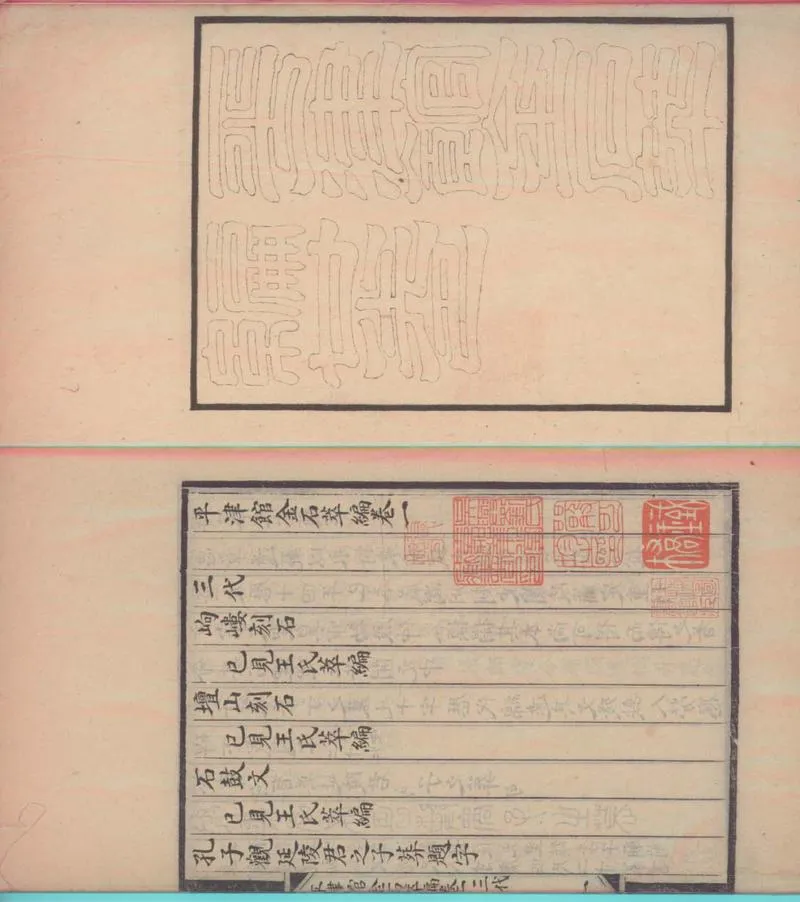 平津館金石萃
編廿卷
平津館金石萃編卷一
三代
岣嶁刻石
已見王氏萃編
壇山刻石
已見王氏萃編
石鼓文
已見王氏萃編
孔子觀延陵君之子葬題字
平津館金石萃編卷一 三代 一